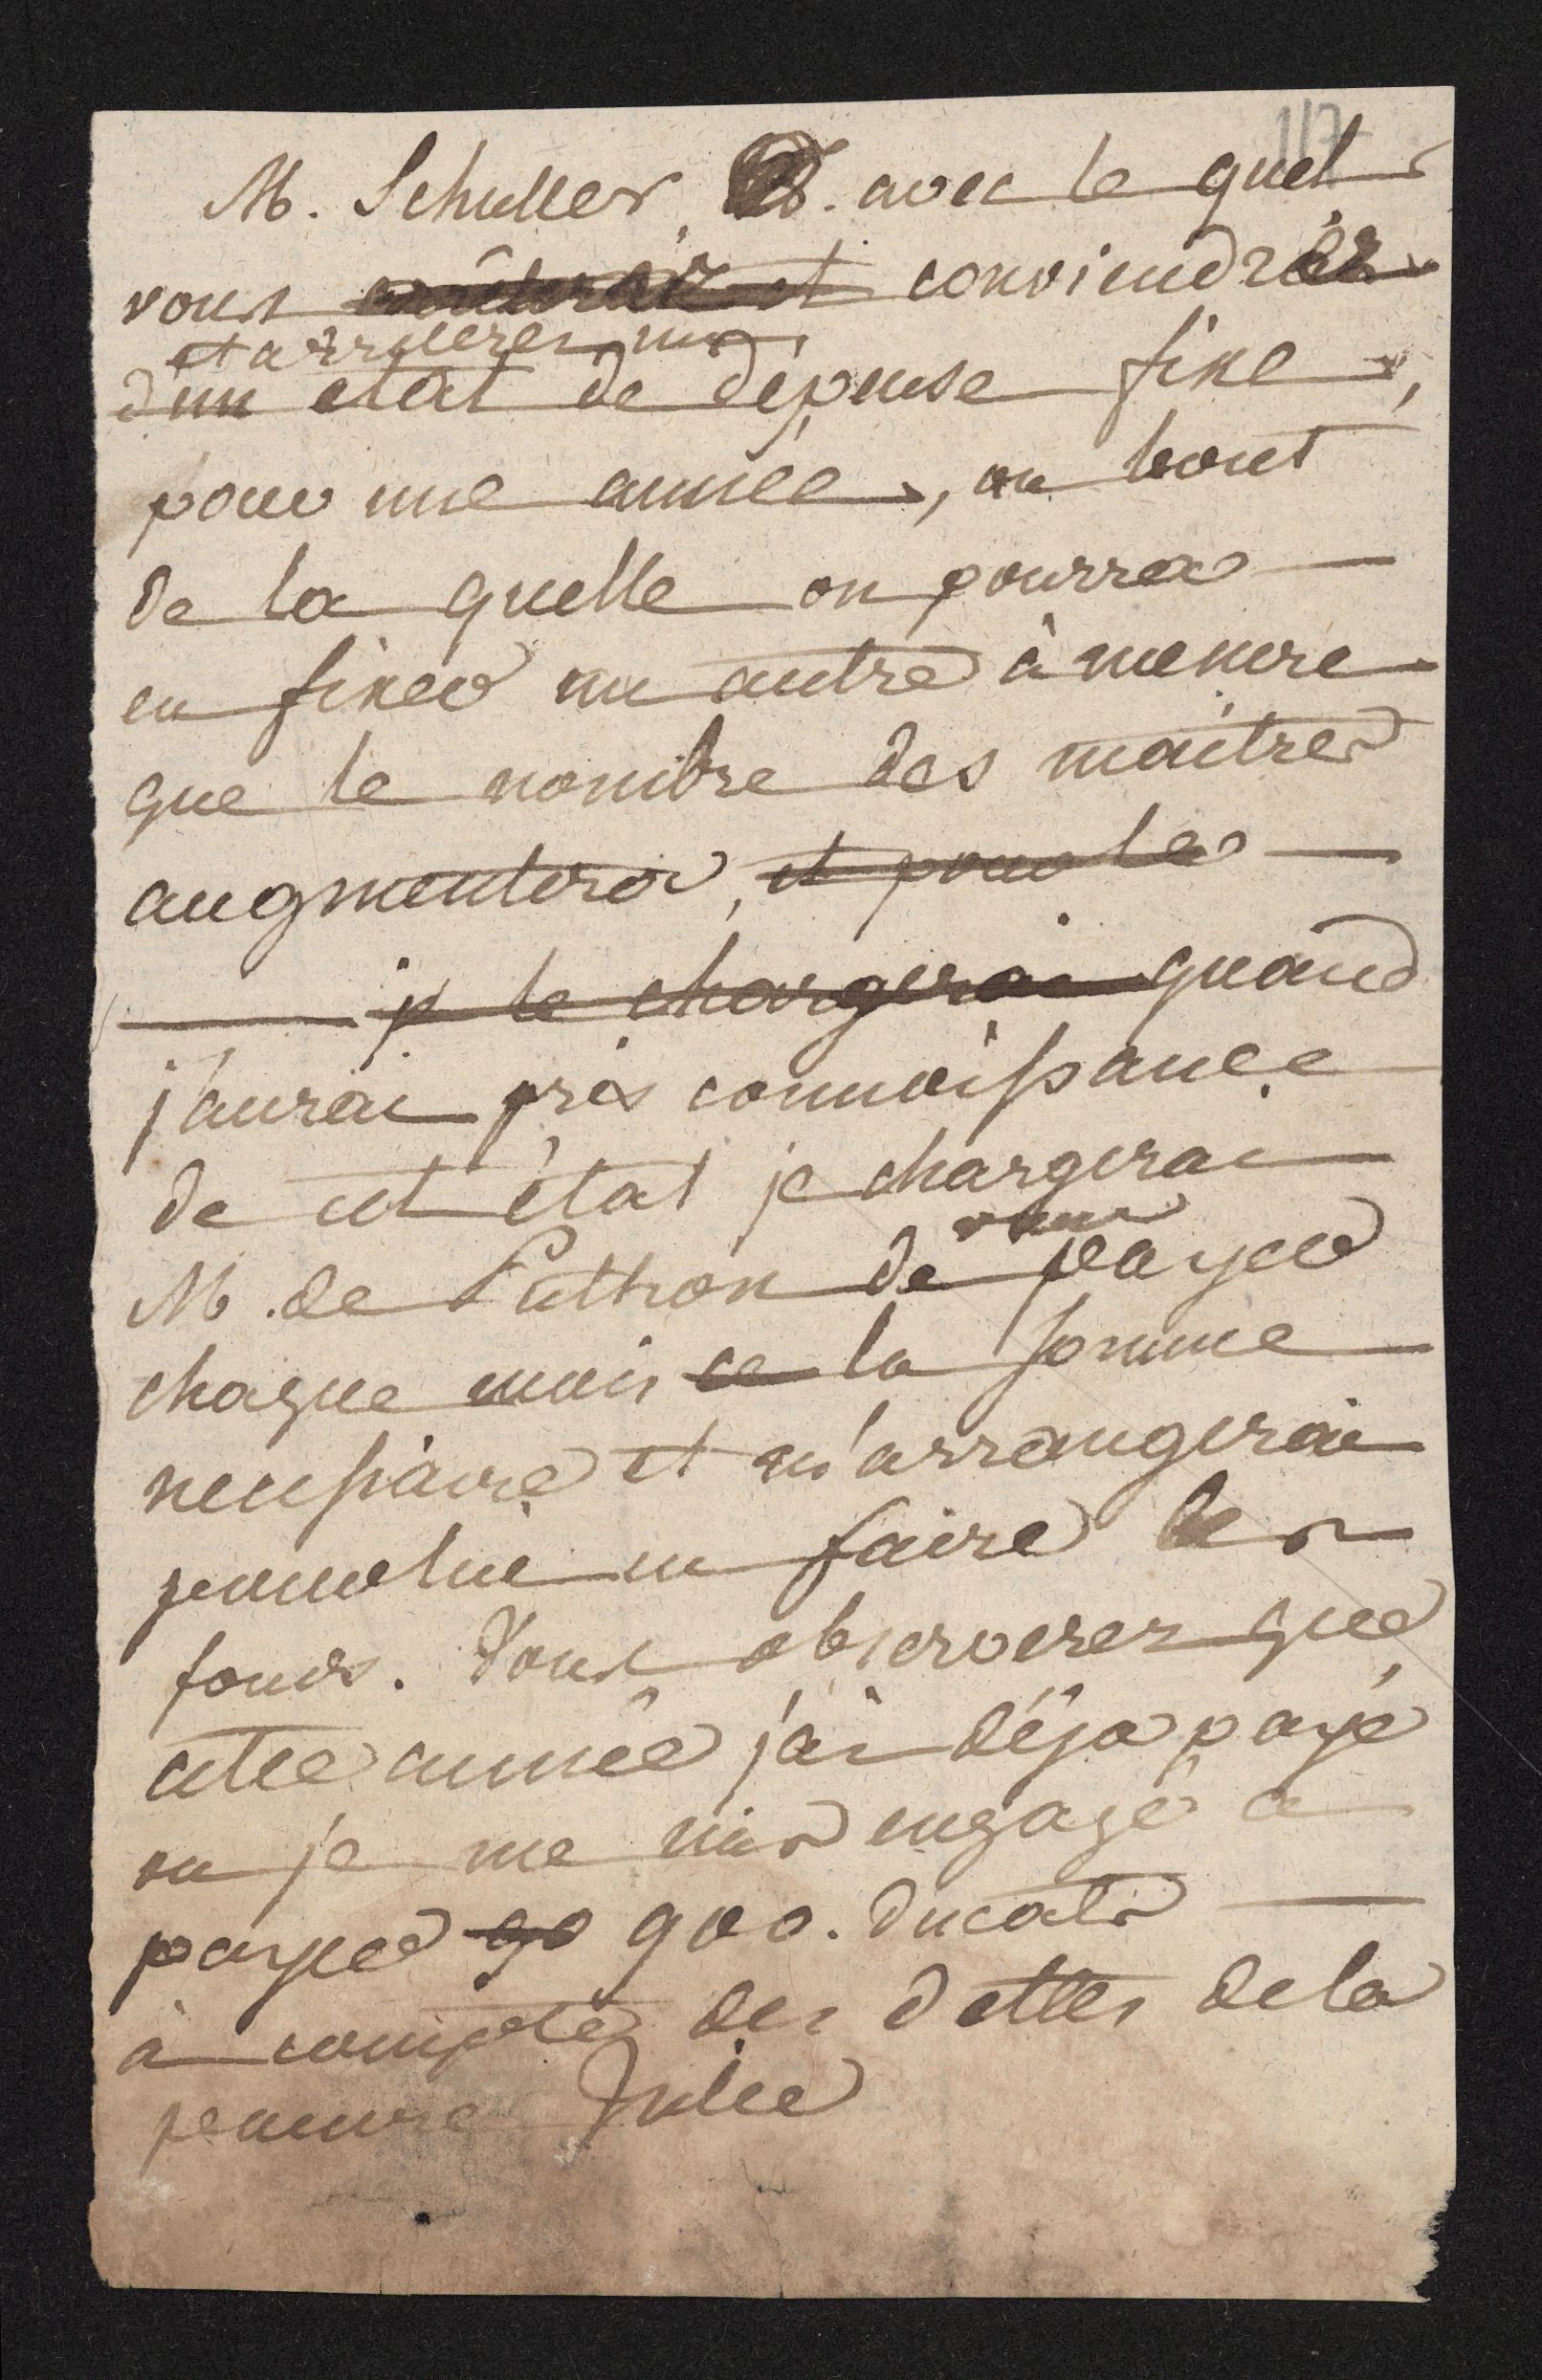 117
M. Schuller avec le quel
vous arrêterez et conviendrez
et arreterez un
d'un etat de dépense fixe,
pour une année, au bout
de la quelle on pourra
en fixer un autre à mesure
que le nombre des maitres
augmentera, et pour les
je le chargerai quand
j'aurai pris connoissance
de cet état je chargerai
vous
M. de Puthon de payer
chaque mois ce la somme
necessaire et m'arrangerai
pour lui en faire les
fonds. Vous observerez que
cette année j'ai déja payé
ou je me suis engagé a
payer 90 900. ducats
à compte des dettes de la
pauvre Julie